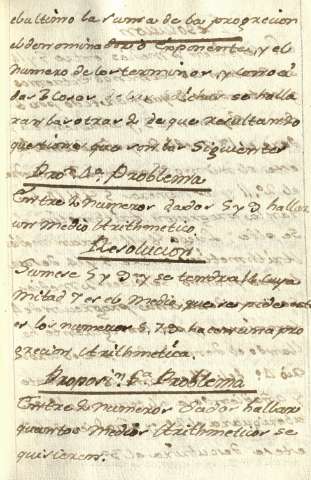 el ultimo la suma de la progrecion
el denominador ó Exponente, y el
numero de los terminos y como
dar 3 cosas de las dichas se halla
ran las otras dos de que resultando
questiones que son las siguientes
Pro.n 4.a Problema
Entre dos numeros dados 5 y 9 hallar
un medio Arithmetico.
Resolucion
Sumese 5 y 9 y se tendra 14 cuya
mitad 7 es el medio que se pide esto
es los numeros 5, 7, 9 hacen una pro
grecion Arithmetica.
Propon.n 5.a Problema
Entre dos numeros dados hallar
quantos Medios Arithmeticos se
quisieren.